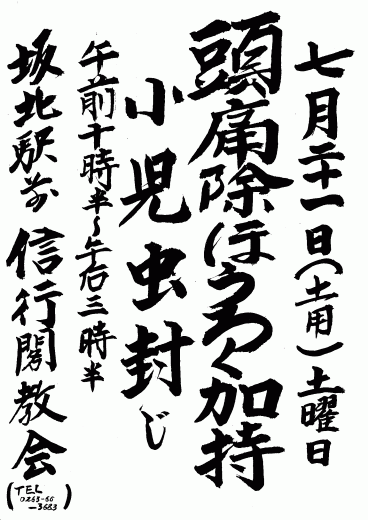 七月二十一日(土用)土曜日
頭痛除ほうろく加持
小児虫封じ
午前十時半～午后三時半
坂北駅前 信行閣教会
(TEL
0263-66
-3683)